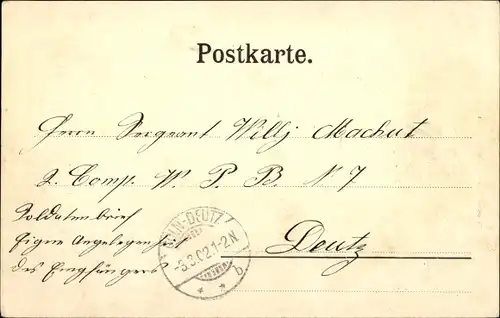 Postkarte.
Herrn Sergeant Willj Machut
2. Comp. W. P. B. N 7
Soldatenbrief
Eigene Angelegenheit
des Empfängers
Deutz
CÖLN-DEUTZ
-3.3.02.1-2.N
* * b